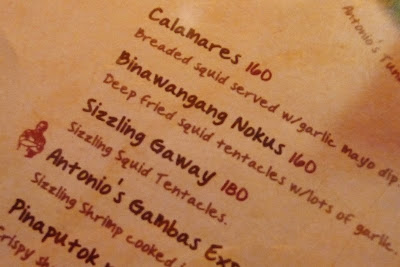 Calamares 160
Breaded squid served w/garlic mayo dip.
Binawangang Nokus 160
Deep fried squid tentacles w/lots of garlic.
Sizzling Gaway 180
Sizzling Squid Tentacles.
Antonio's Gambas
Sizzling Shrimp cooked
Pinaputok
Crispy
Antonio's